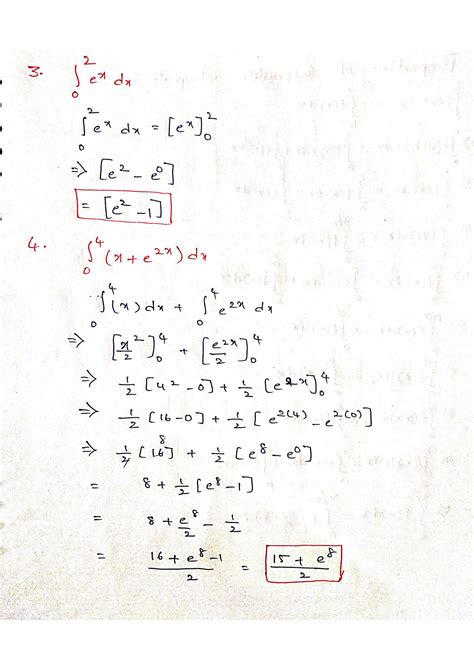 3. ∫₀² eˣ dx
∫₀² eˣ dx = [eˣ]₀²
⇒ [e² - e⁰]
= [e² - 1]
4. ∫₀⁴ (x + e²ˣ) dx
∫₀⁴ (x) dx + ∫₀⁴ e²ˣ dx
⇒ [x²/2]₀⁴ + [e²ˣ/2]₀⁴
⇒ 1/2 [4² - 0] + 1/2 [e²ˣ]₀⁴
⇒ 1/2 [16 - 0] + 1/2 [e²⁽⁴⁾ - e²⁽⁰⁾]
8
⇒ 1/2 [16] + 1/2 [e⁸ - e⁰]
= 8 + 1/2 [e⁸ - 1]
= 8 + e⁸/2 - 1/2
= (16 + e⁸ - 1)/2 = (15 + e⁸)/2